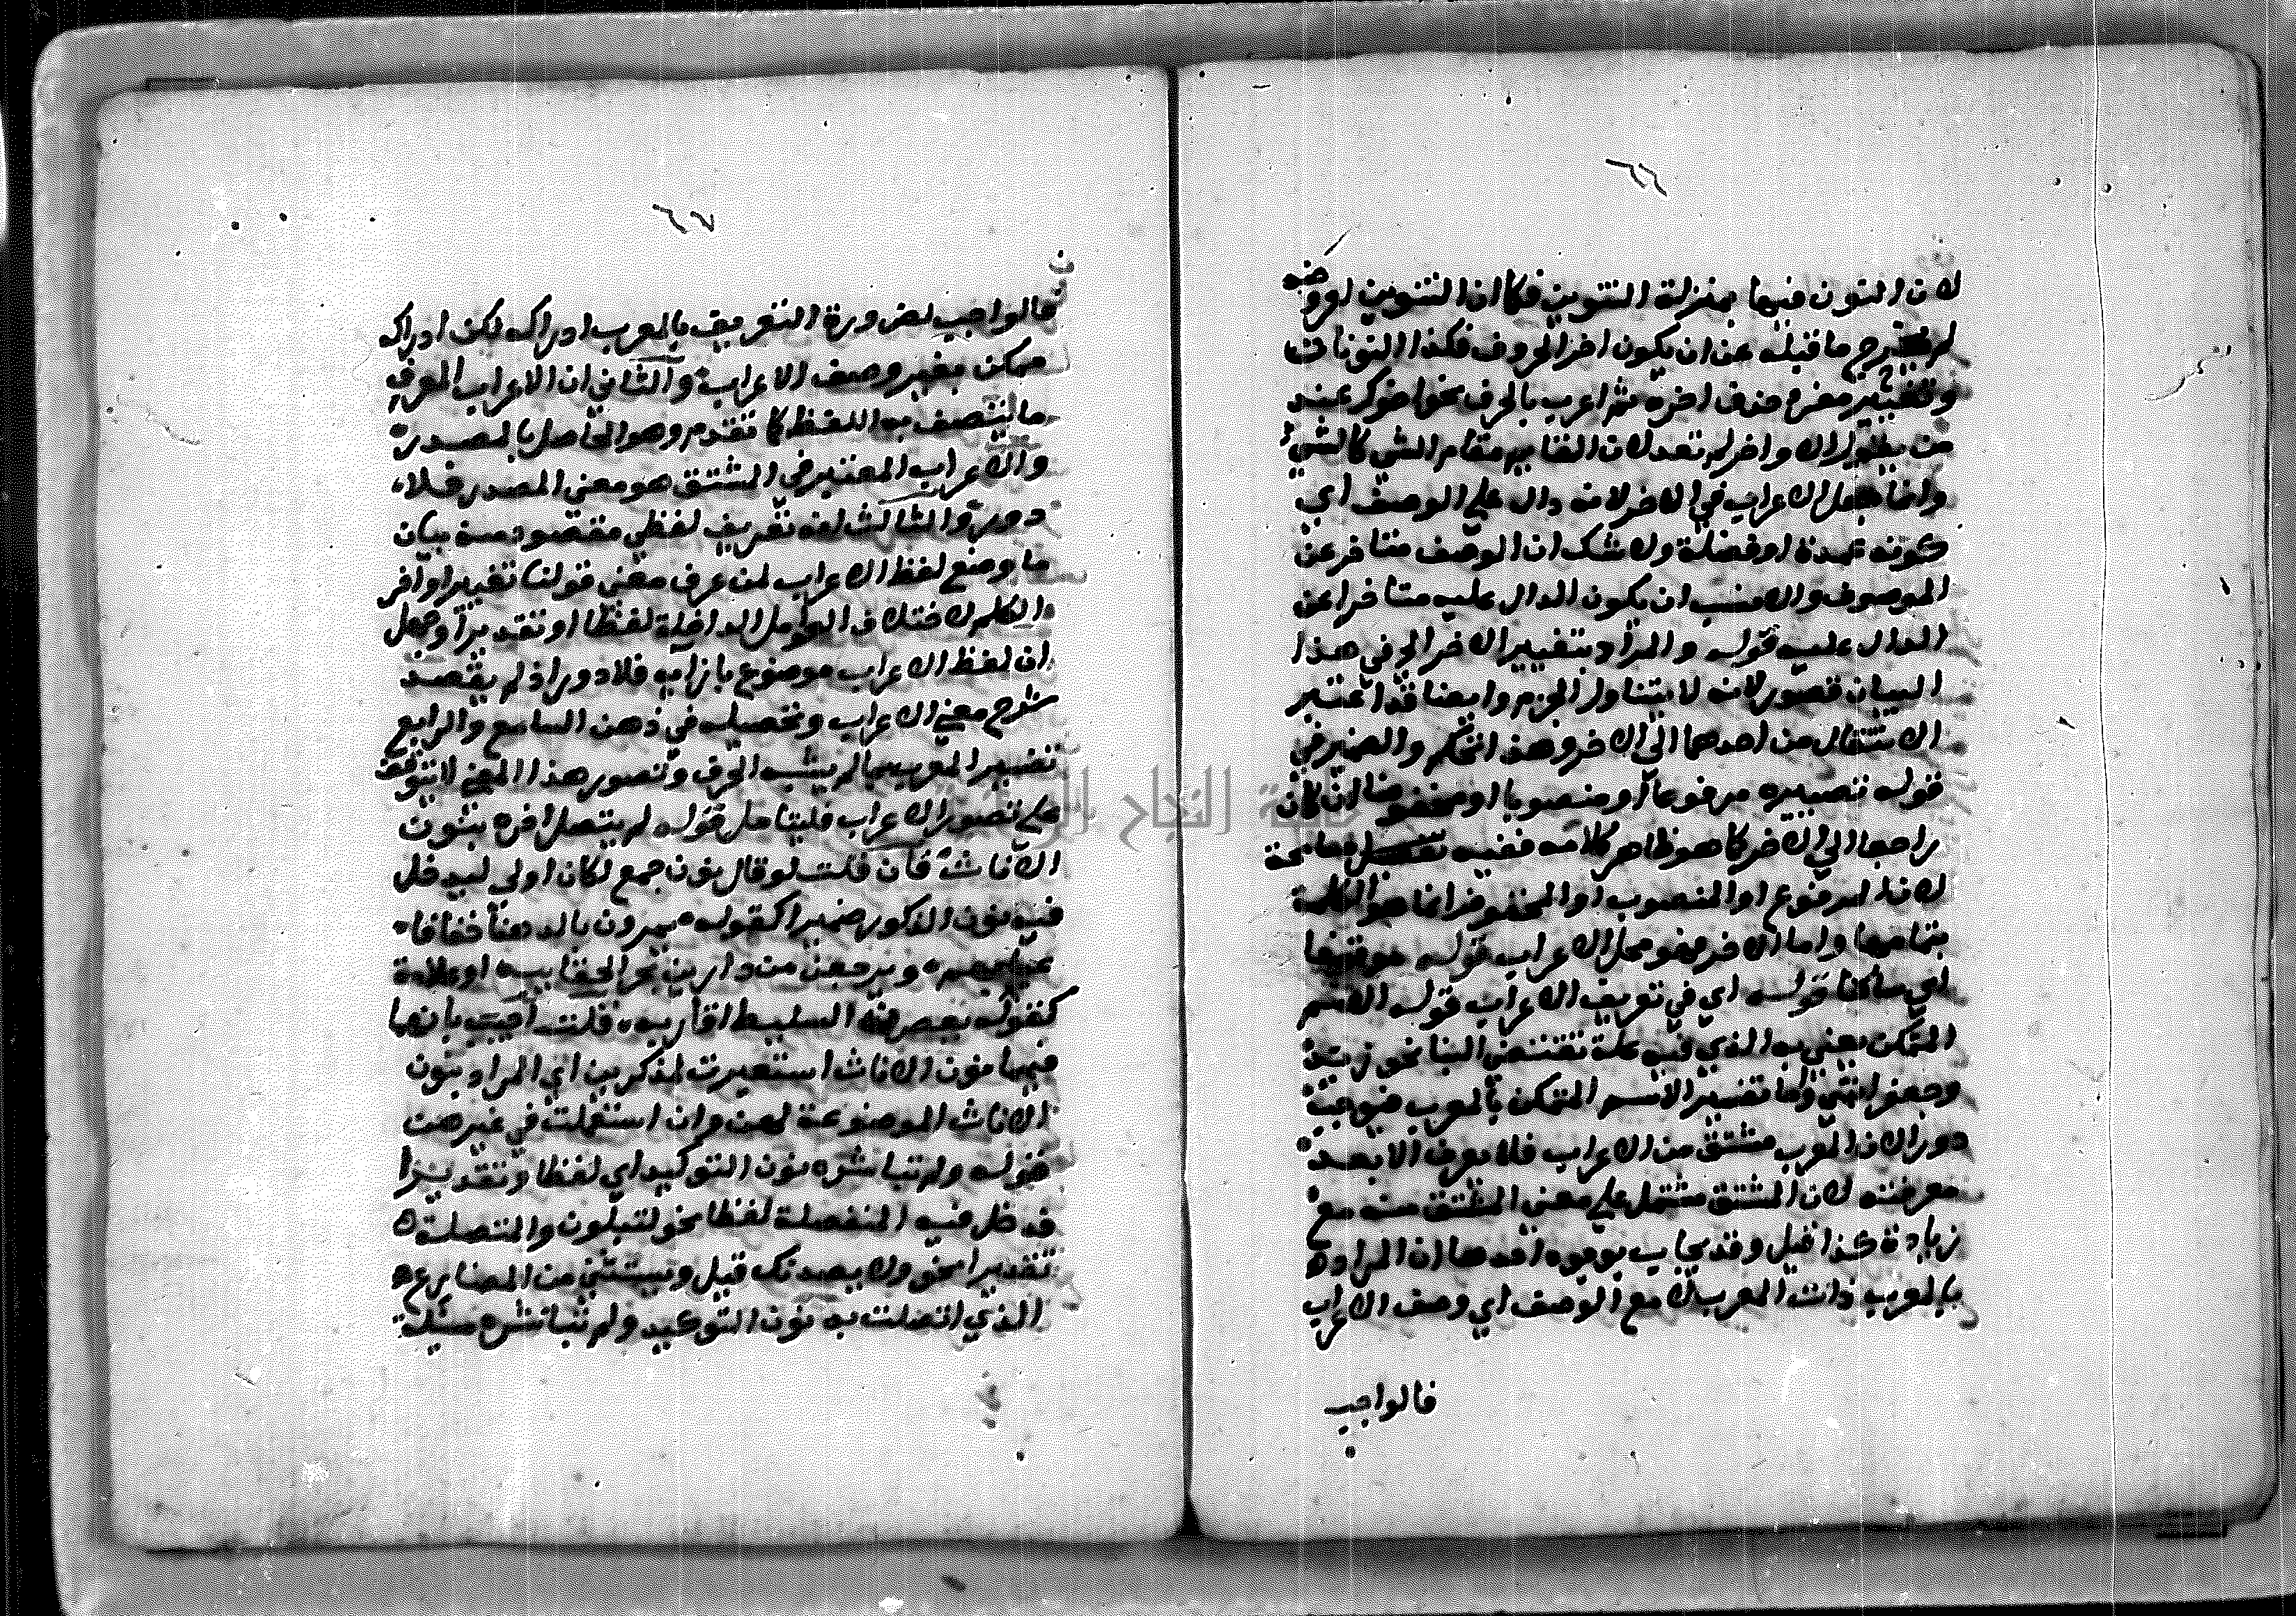 ٦٦
لان النون فيها بمنزلة التنوين فكما ان التنوين لعروضه
لم يخرج ما قبله عن ان يكون اخر الحروف فكذا النونات
من يقول ولا واخر لم تعد لان القايم مقام الشي كالشي
وانما جعل الاعراب في الاخر لانه دال علي الوصف اي
كونه عمدة او فضلة ولا شك ان الوصف متاخر عن
الموصوف والانسب ان يكون الدال عليه متاخرا عن
الدال عليه قوله والمراد بتغيير الاخر الخ في هذا
البيان قصور لانه لا يتناول الجزم وايضا قد اعتبر
الانتقال من احدهما الي الاخر وهذا تحكم والضمير في
قوله تصييره مرفوعا او منصوبا او مخفوضا ان كان
راجعا الي الاخر كما هو ظاهر كلامه ففيه مسامحة
لان المرفوع او المنصوب او المخفوض انما هو الكلمة
بتمامها واما الاخر فهو محل الاعراب قوله موقوفا
اي ساكنا قوله اي في تعريف الاعراب قوله الاسم
المتمكن يعني به الذي فيه علة تقتضي البنا نحو زيد
وجعفر انتهي واما تفسير الاسم المتمكن بالمعرب فيوجب
دورا لان المعرب مشتق من الاعراب فلا يعرف الا بعد
معرفته لان المشتق مشتمل علي معني المشتق منه مع
زيادة كذا قيل وقد يجاب بوجوه احدها ان المراد
بالمعرب ذات المعرب لا مع الوصف اي وصف الاعراب
فالواجب
٦٧
فالواجب لضرورة التعريف بالمعرب ادراكه لكن ادراكه
ممكن بغير وصف الاعراب والثاني ان الاعراب المعرف
ما يتصف به اللفظ كما تقدم وهو الحاصل بالمصدر
والاعراب المعتبر في المشتق هو معني المصدر فلا
دور والثالث انه تعريف لفظي مقصود منه بيان
ما وضع لفظ الاعراب لمن عرف معني قولنا تغيير اواخر
الكلم لاختلاف العوامل الداخلة لفظا او تقديرا وجهل
ان لفظ الاعراب موضوع بازايه فلا دور اذ لم يقصد
شرح معني الاعراب وتحصيله في ذهن السامع والرابع
تفسير المعرب بما لم يشبه الحرف وتصور هذا المعني لا يتوقف
علي تصور الاعراب فليتامل قوله لم يتصل اخره بنون
الاناث فان قلت لو قال نون جمع لكان اولي ليدخل
فيه نون الذكور ضميرا كقوله يمرون بالدهنا خفافا
عيابهم ويرجعن من دارين بجر الحقايب او علامة
كقوله يعصرن السليط اقاربه قلت اجيب بانها
فيهما نون الاناث استعيرت لمذكرين اي المراد بنون
الاناث الموضوعة لهن وان استعملت في غيرهن
قوله ولم تباشره نون التوكيد اي لفظا وتقديرا
فدخل فيه المنفصلة لفظا نحو لتبلون والمتصلة
تقديرا نحو ولا يصدنك قيل ويستثني من المضارع
الذي اتصلت به نون التوكيد ولم تباشره مسئلة